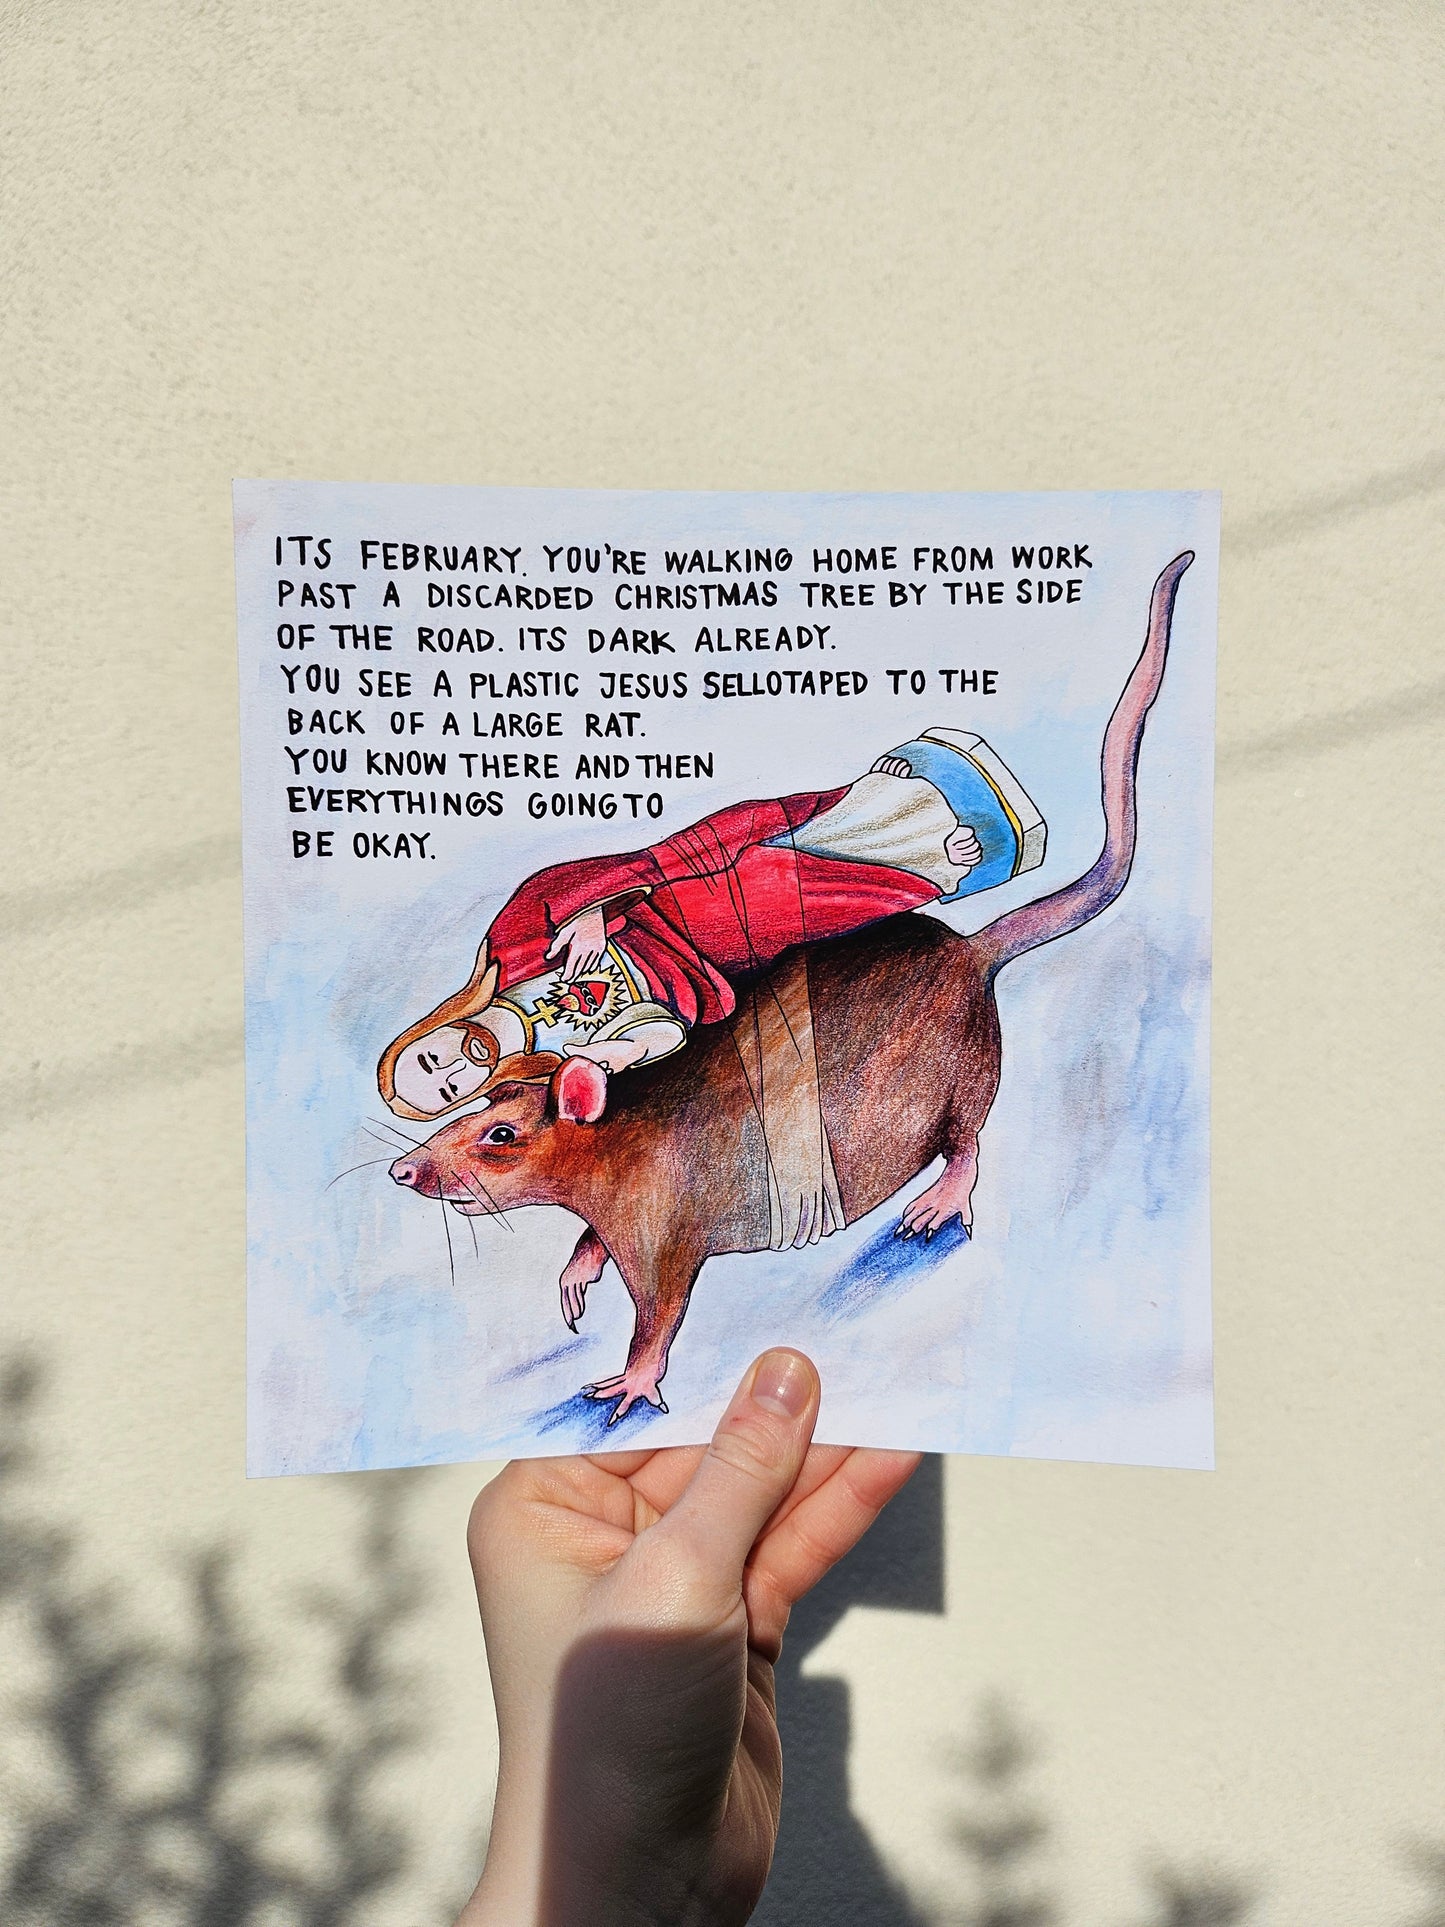 ITS FEBRUARY. YOU'RE WALKING HOME FROM WORK
PAST A DISCARDED CHRISTMAS TREE BY THE SIDE
OF THE ROAD. ITS DARK ALREADY.
YOU SEE A PLASTIC JESUS SELLOTAPED TO THE
BACK OF A LARGE RAT.
YOU KNOW THERE AND THEN
EVERYTHINGS GOING TO
BE OKAY.